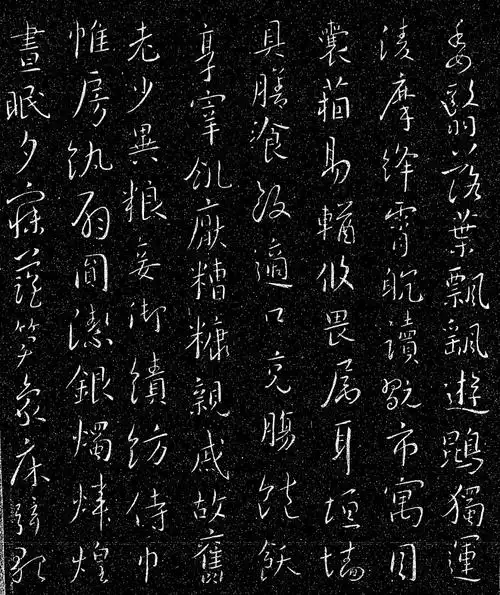 委翳落葉飄飖遊鵾獨運
淩摩絳霄耽讀翫市寓目
囊箱易輶攸畏属耳垣墻
具膳飡飯適口充腸飽飫
享宰飢厭糟糠親戚故舊
老少異粮妾御績紡侍巾
帷房紈扇圓潔銀燭煒煌
晝眠夕寐藍笋象床弦歌